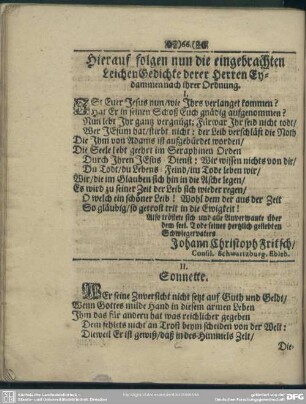 66.
Hierauf folgen nun die eingebrachten
Leichen Gedichte derer Herren Ey-
dammen nach ihrer Ordnung.
I.
ISt Euer JEsus nun / wie Ihrs verlanget kommen?
Hat Er in seinen Schoß Euch gnädig aufgenommen?
Nun lebt Ihr gantz vergnügt; Fürwar Ihr seid nicht todt /
Wer JEsum hat / stirbt nicht: der Leib verschläft die Noth
Die Ihm von Adams ist aufgebürdet worden /
Die Seele lebt hiebei im Seraphinen Orden
Durch Ihren JEsus Dienst: Wir wissen nichts von dir /
Du Todt / du Lebens-Feind / im Tode leben wir /
Wir / die im Glauben sich hin in die Asche legen /
Es wird zu seiner Zeit der Leib sich wieder regen /
O welch ein schöner Leib! Wohl dem der aus der Zeit
So gläubig / so getrost tritt in die Ewigkeit!
Also tröstete sich und alle Anverwante über
dem seel. Tode seines hertzlich geliebten
Schwiegervaters
Johann Christoph Fritsch /
Consil. Schwartzburg. Ebleb.
II.
Sonnette.
WEr seine Zuversicht nicht setzt auf Guth und Geldt /
Wenn Gottes milde Hand in diesem armen Leben
Ihm das für andern hat was reichlicher gegeben
Dem fehlets nicht an Trost beym scheiden von der Welt:
Dieweil Er ist gewiß / daß in des Himmels Zelt /
Die-